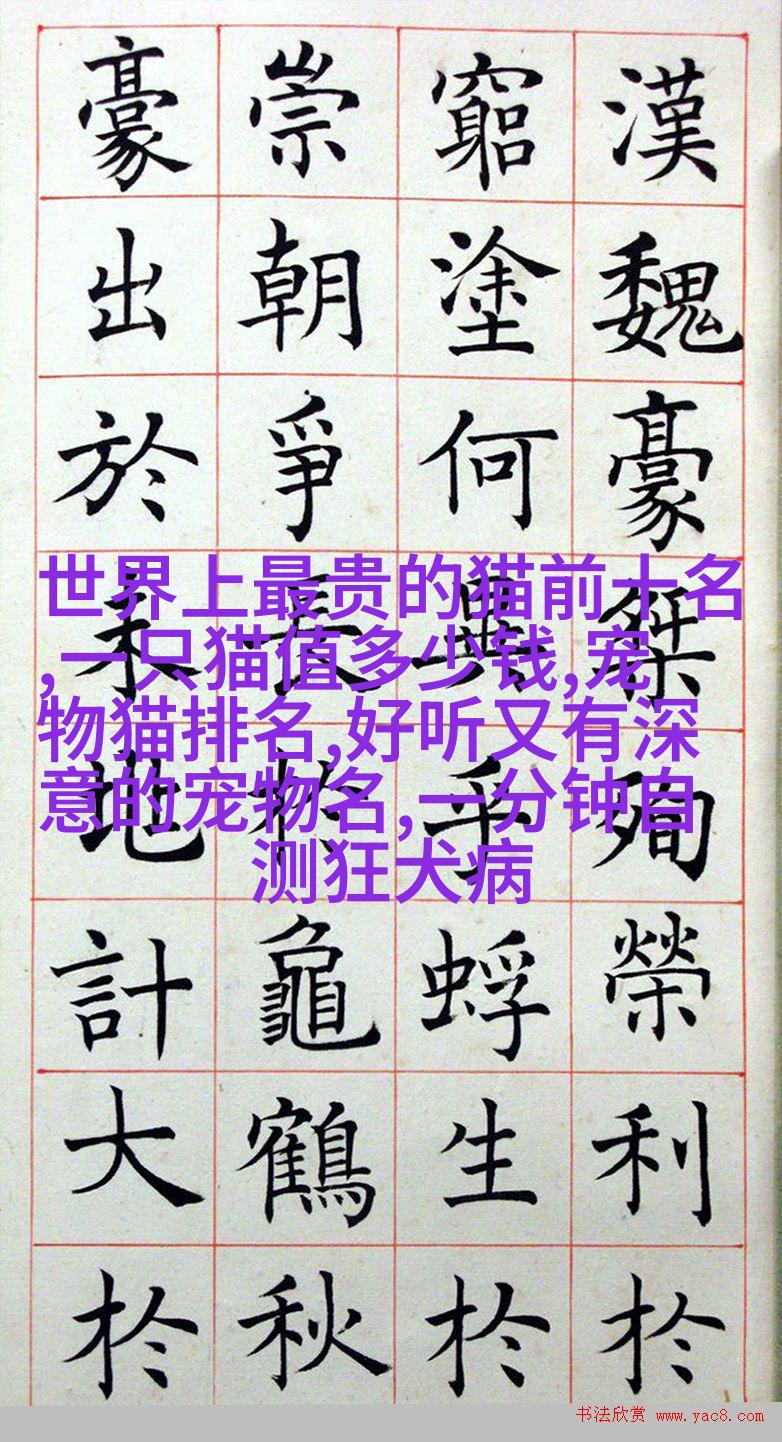 漢魏豪桀殉榮利扵
窮塗何異乎蜉生扵
崇朝爭長扵龜鶴秋
豪出於末地計大扵
世界上最贵的猫前十名
,一只猫值多少钱,宠
物猫排名,好听又有深
意的宠物名,一分钟自
测狂犬病
书法欣赏 www.yac8.com